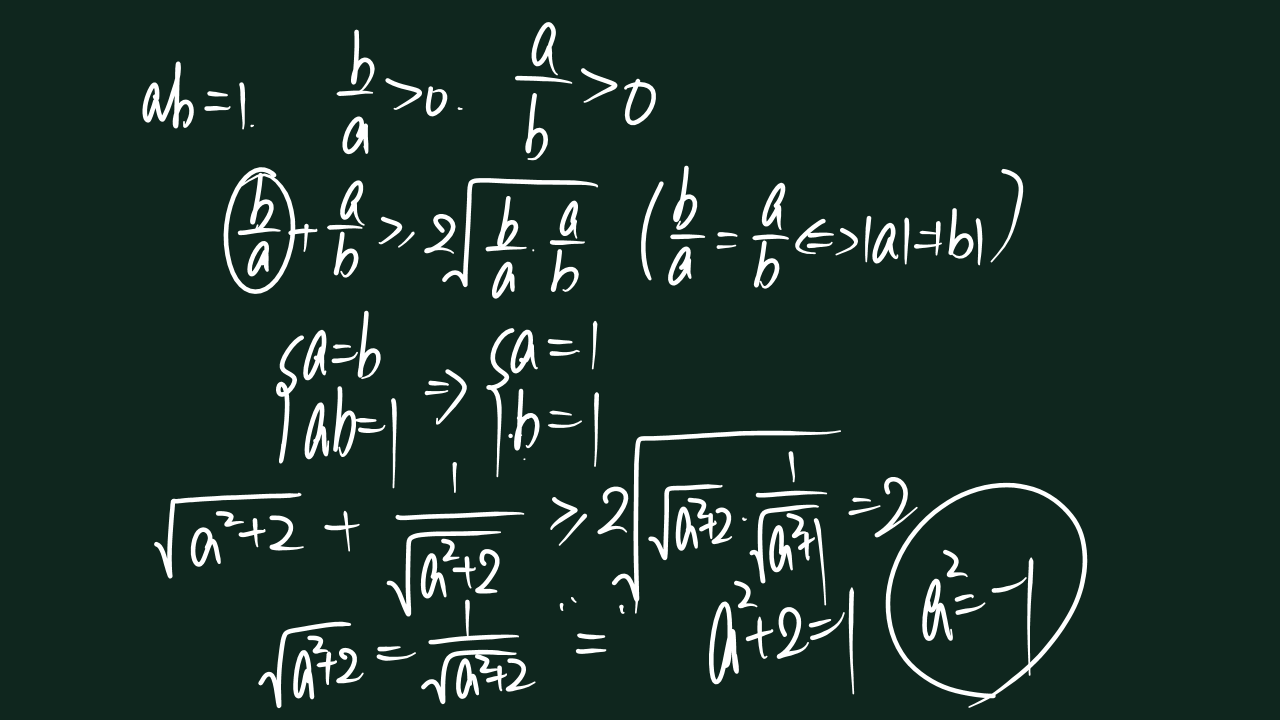 ab=1. b/a>0. a/b>0
b/a+a/b≥2√(b/a·a/b) (b/a=a/b<=>|a|=|b|)
{a=b ab=1 => {a=1 b=1
√(a²+2) + 1/√(a²+2) ≥ 2√(√(a²+2)·1/√(a²+1)) = 2
√(a²+2) = 1/√(a²+2) "=" a²+2=1 a²=-1